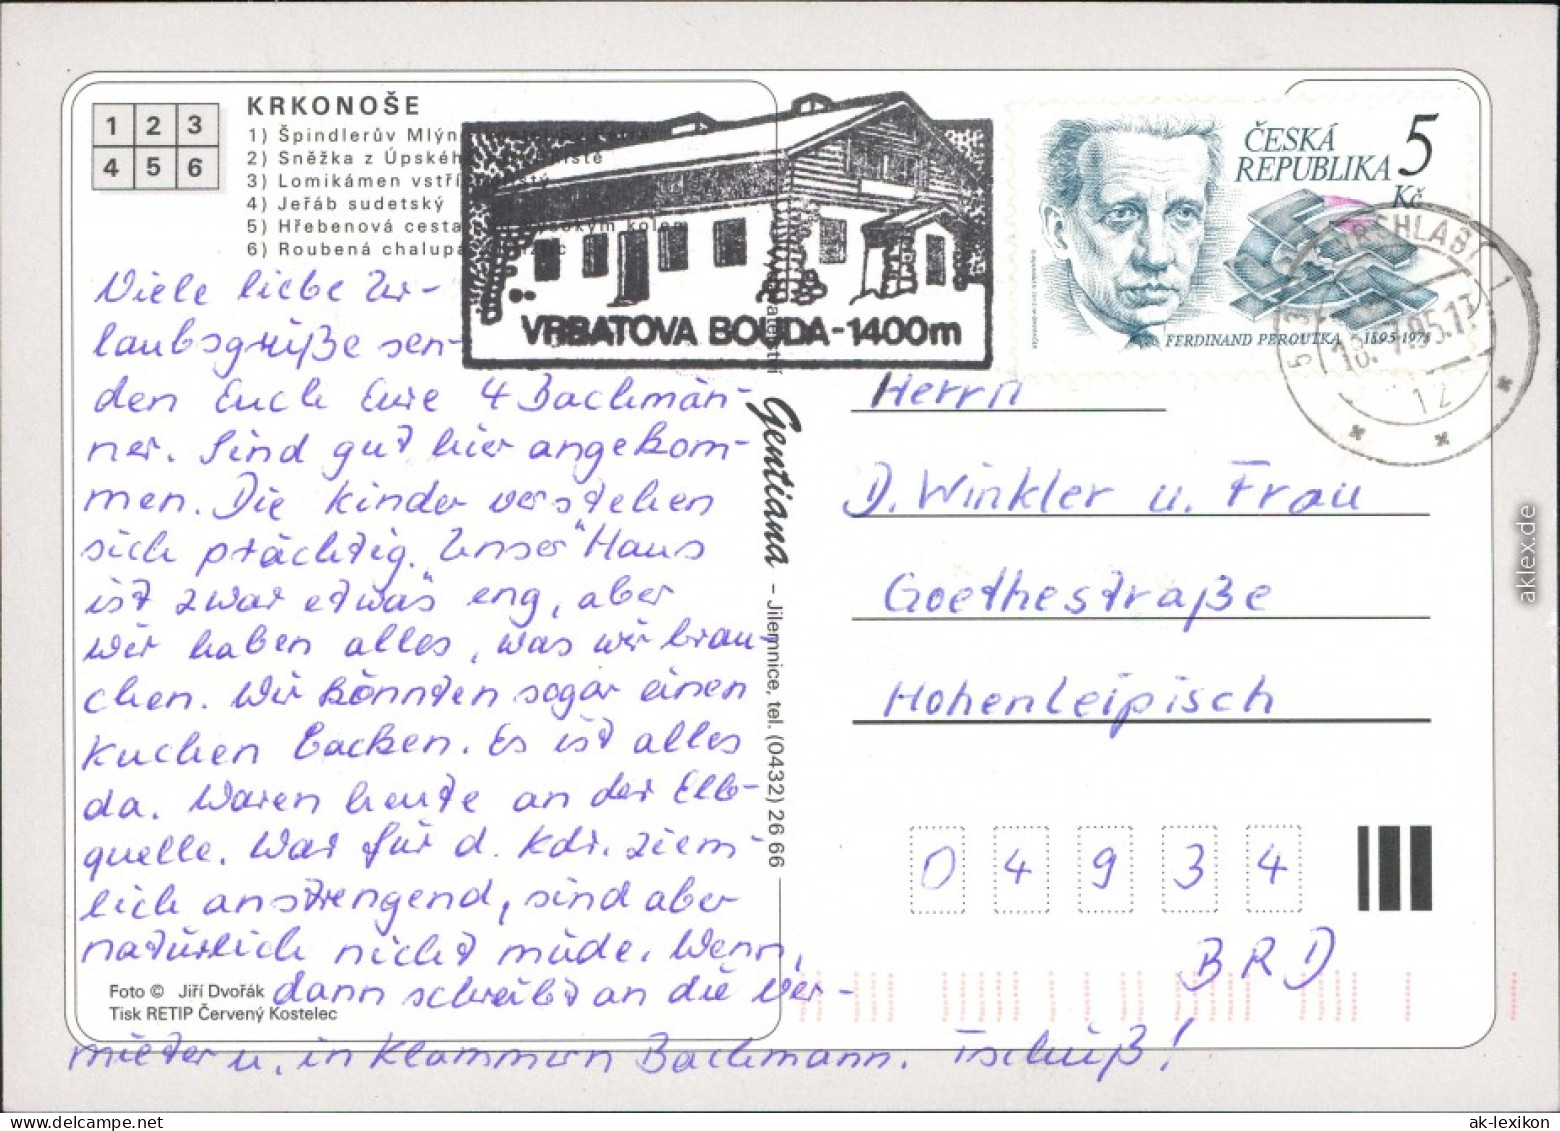 KRKONOŠE
1 2 3
4 5 6
1) Špindlerův Mlýn
2) Sněžka z Úpského
3) Lomikámen vstřícnolistý
4) Jeřáb sudetský
5) Hřebenová cesta Vysokým kolem
6) Roubená chalupa
VRBATOVA BOUDA-1400m
ČESKÁ
REPUBLIKA
5
Kč
FERDINAND PEROUTKA 1895-1978
VRCHLABÍ 1
18.-7.95.17
12
Viele liebe Ur-
laubsgrüße sen-
den Euch Eure 4 Bachmän-
ner. Sind gut hier angekom-
men. Die Kinder verstehen
sich prächtig. "Unser" Haus
ist zwar etwas eng, aber
wir haben alles, was wir brau-
chen. Wir könnten sogar einen
Kuchen backen. Es ist alles
da. Waren heute an der Elb-
quelle. War für d. Kdr. ziem-
lich anstrengend, sind aber
natürlich nicht müde. Wenn,
dann schreibt an die Ver-
mieter u. in Klammern Bachmann. Tschüß!
Foto © Jiří Dvořák
Tisk RETIP Červený Kostelec
Gentiana – Jilemnice, tel. (0432) 26 66
Herrn
D. Winkler u. Frau
Goethestraße
Hohenleipisch
0 4 9 3 4
BRD
aklex.de
ak-lexikon